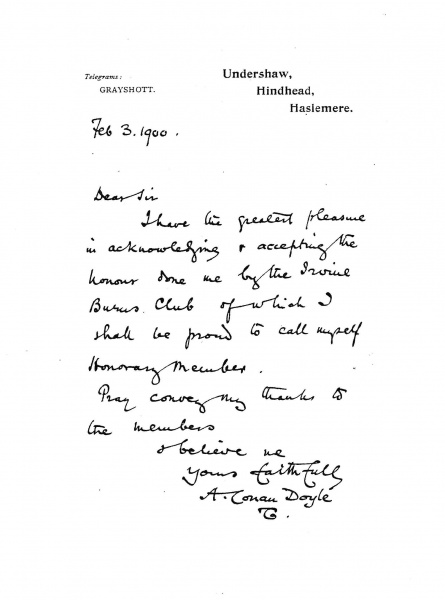 Telegrams:
GRAYSHOTT.
Undershaw,
Hindhead,
Haslemere.
Feb 3. 1900.
Dear Sir
I have the greatest pleasure
in acknowledging & accepting the
honour done me by the Irvine
Burns Club of which I
shall be proud to call myself
Honorary Member.
Pray convey my thanks to
the members
& believe me
Yours faithfully
A. Conan Doyle